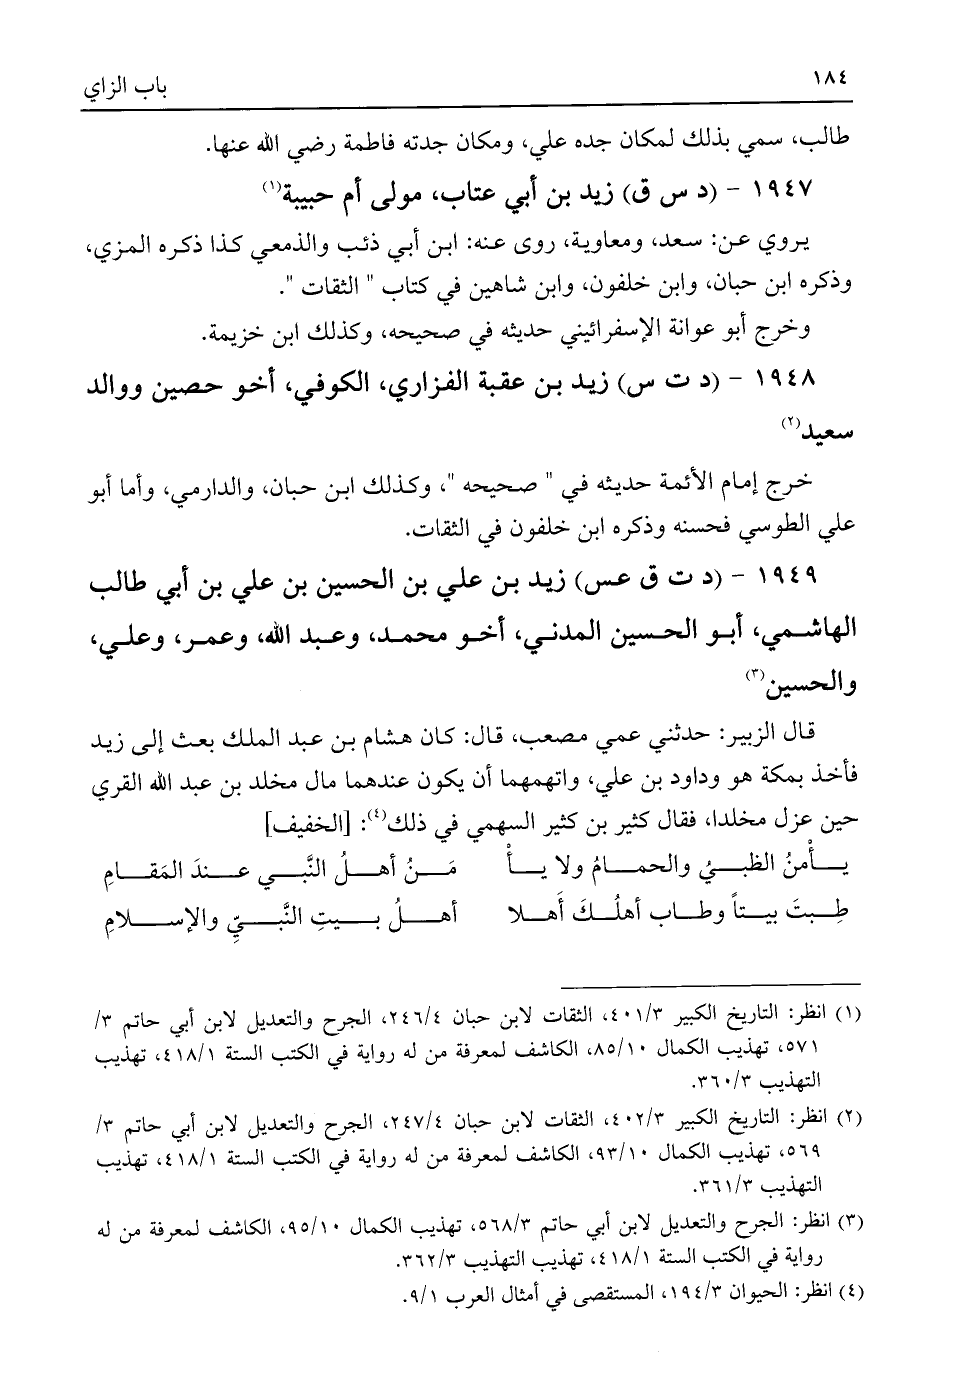 ١٨٤
باب الزاي
طالب، سمي بذلك لمكان جده علي، ومكان جدته فاطمة رضي الله عنها.
١٩٤٧ - (د س ق) زيد بن أبي عتاب، مولى أم حبيبة(١)
يروي عن: سعد، ومعاوية، روى عنه: ابن أبي ذئب والذمعي كذا ذكره المزي،
وذكره ابن حبان، وابن خلفون، وابن شاهين في كتاب " الثقات ".
وخرج أبو عوانة الإسفرائيني حديثه في صحيحه، وكذلك ابن خزيمة.
١٩٤٨ - (د ت س) زيد بن عقبة الفزاري، الكوفي، أخو حصين ووالد
سعيد(٢)
خرج إمام الأئمة حديثه في " صحيحه "، وكذلك ابن حبان، والدارمي، وأما أبو
علي الطوسي فحسنه وذكره ابن خلفون في الثقات.
١٩٤٩ - (د ت ق عس) زيد بن علي بن الحسين بن علي بن أبي طالب
الهاشمي، أبو الحسين المدني، أخو محمد، وعبد الله، وعمر، وعلي،
والحسين(٣)
قال الزبير: حدثني عمي مصعب، قال: كان هشام بن عبد الملك بعث إلى زيد
فأخذ بمكة هو وداود بن علي، واتهمهما أن يكون عندهما مال مخلد بن عبد الله القري
حين عزل مخلدا، فقال كثير بن كثير السهمي في ذلك(٤): [الخفيف]
يأْمنُ الظبيُ والحمامُ ولا يأْ مَنُ أهلُ النَّبي عندَ المَقامِ
طِبتَ بيتاً وطاب أهلُكَ أَهلا أهلُ بيتِ النَّبيِّ والإسلامِ
(١) انظر: التاريخ الكبير ٤٠١/٣، الثقات لابن حبان ٢٤٦/٤، الجرح والتعديل لابن أبي حاتم ٣/
٥٧١، تهذيب الكمال ٨٥/١٠، الكاشف لمعرفة من له رواية في الكتب الستة ٤١٨/١، تهذيب
التهذيب ٣٦٠/٣.
(٢) انظر: التاريخ الكبير ٤٠٢/٣، الثقات لابن حبان ٢٤٧/٤، الجرح والتعديل لابن أبي حاتم ٣/
٥٦٩، تهذيب الكمال ٩٣/١٠، الكاشف لمعرفة من له رواية في الكتب الستة ٤١٨/١، تهذيب
التهذيب ٣٦١/٣.
(٣) انظر: الجرح والتعديل لابن أبي حاتم ٥٦٨/٣، تهذيب الكمال ٩٥/١٠، الكاشف لمعرفة من له
رواية في الكتب الستة ٤١٨/١، تهذيب التهذيب ٣٦٢/٣.
(٤) انظر: الحيوان ١٩٤/٣، المستقصى في أمثال العرب ٩/١.